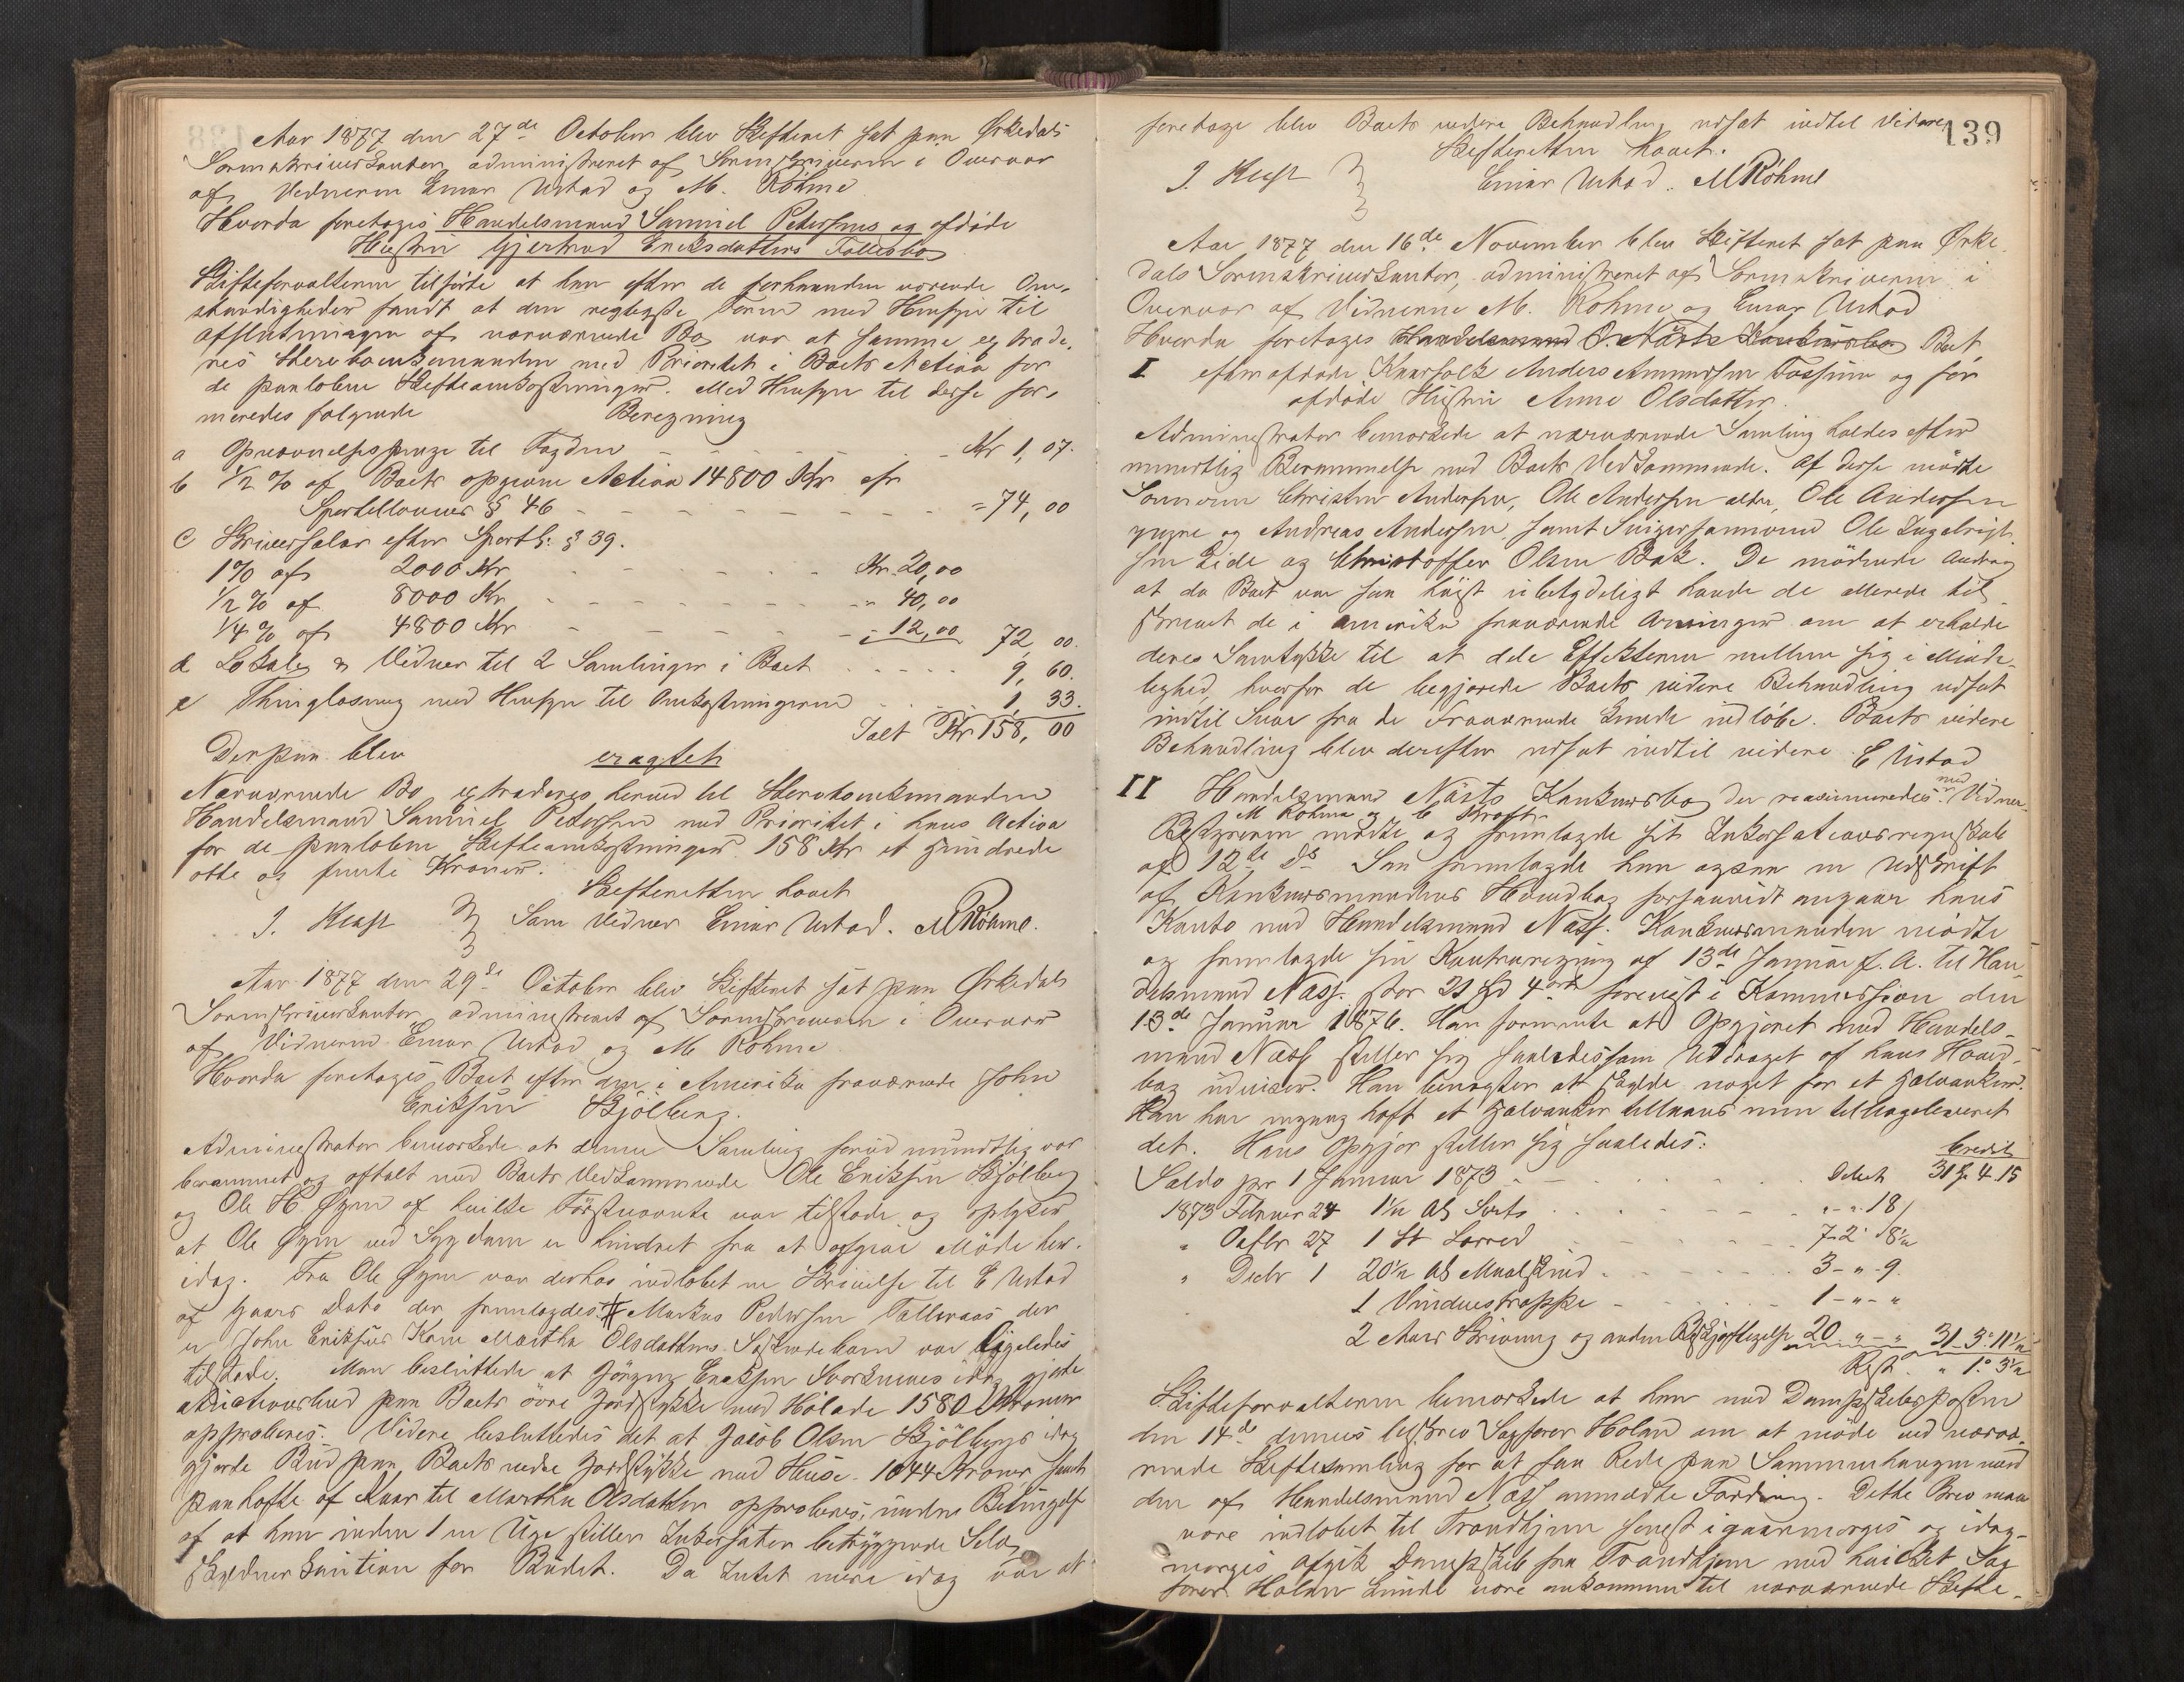 Aar 1877 den 27de October blev Skifteret sat paa Ørkedals
Sorenskriverkontor, administreret af Sorenskriveren i Overvær
af Vidnerne Einar Ustad og M. Röhme
Hvorda foretoges Handelsmand Samuel Petersens og afdøde
Hustru Gjertrud Eriksdatters Fællesbo
Skifteforvalteren tilførte at han efter de forhaanden værende Om-
stændigheder fandt at den rigtigste Form med Hensyn til
Afslutningen af nærværende Bo var at samme extrade-
res Sterboenkemanden med Prioritet i Boets Activa for
de paaløbne Skifteomkostninger. Med Hensyn til disse for-
meredes følgende Beregning
a Opnævnelsespenge til Fogden Kr 1,07.
b 1/2 % af Boets opgivne Activa 14800 Kr efr
Sportelloven § 46 = 74,00
c Skriversalær efter Sportl: § 39.
1% af 2000 Kr Kr. 20,00
1/2 % af 8000 Kr " 40,00
1/4 % af 4800 Kr " 12,00 72,00.
d Lokale & Vidner til 2 Samlinger i Boet 9,60.
e Thinglæsning med Hensyn til Omkostningerne 1,33.
Ialt Kr 158,00
Derpaa blev eragtet
Nærværende Bo extraderes herved til Sterboenkemanden
Handelsmand Samuel Petersen med Prioritet i hans Activa
for de paaløbne Skifteomkostninger 158 Kr et hundrede
otte og femti Kroner.
Skifteretten hævet
J. Som Vidner Einar Ustad. M Röhme.
Aar 1877 den 29de October blev Skifteret sat paa Ørkedals
Sorenskriverkontor administreret af Sorenskriveren i Overvær
af Vidnerne Einar Ustad og M Röhme
Hvorda foretoges Boet efter den i Amerika fraværende John
Eriksen Skjölberg.
Administrator bemærkede at denne Samling forud mundtlig var
berammet og aftalt med Boets Vedkommende Ole Eriksen Skjölberg
og Ole H. Øyen af hvilke Førstnævnte var tilstede og oplyser
at Ole Øyen ved Sygdom er hindret fra at afgive Møde her
idag. Fra Ole Øyen var derhos indløbet en Skrivelse til E Ustad
af Gaars Dato der fremlagdes. # Markus Pedersen der
er John Eriksens Kone Martha Olsdatters Søskendebarn var ligeledes
tilstede. Man besluttede at Jörgen Eriksen idag gjorte
Auctionsbud paa Boets övre Jordstykke med Hölade 1580 Kroner
approberes. Videre besluttedes det at Jacob Olsen Skjölbergs idag
gjorte Bud paa Boets nedre Jordstykke med Huse 1044 Kroner samt
paahefte af Kaar til Martha Olsdatter approberes, under Betingelse
af at han inden 1 en Uge stiller Inkassator betryggende Selv-
skyldnerkaution for Budet. Da Intet mere idag var at
139
foretage blev Boets videre Behandling udsat indtil videre
Skifteretten hævet.
J. Einar Ustad. M Röhme
Aar 1877 den 16de November blev Skifteret sat paa Ørke-
dals Sorenskriverkontor, administreret af Sorenskriveren i
Overvær af Vidnerne M. Röhme og Einar Ustad
Hvorda foretages Handelsmand O. Næss's Konkursbo Boet
I efter afdøde Kaarfolk Anders Amundsen Fossum og før
afdöde Hustru Anne Olsdatter.
Administrator bemærkede at nærværende Samling holdes efter
mundtlig Berammelse med Boets Vedkommende. Af disse mödte
Sönnerne Christen Andersen, Ole Andersen ældre, Ole Andersen
yngre og Andreas Andersen samt Svigersönnerne Ole Ingebrigt-
sen Lide og Christoffer Olsen Bak. De mödende androg
at da Boet var saa höist ubetydeligt havde de allerede til-
skrevet de i Amerika fraværende Arvinger om at erholde
deres Samtykke til at dele Effekterne mellem sig i Minde-
lighed, hvorfor de begjærede Boets videre Behandling udsat
indtil Svar fra de Fraværende kunde indløbe. Boets videre
Behandling blev derefter udsat indtil videre E Ustad
II Handelsmand Næss's Konkursbo der reassumeredes med Vidner
M Röhme og
Bestyreren mødte og fremlagde sit Inkassationsregnskab
af 12te ds. Saa fremlagde han ogsaa en Udskrift
af Konkursmandens Hovedbog forsaavidt angaar hans
Konto med Handelsmand Næss. Konkursmanden mødte
og fremlagde sin Kontraregning af 13de Januar f. A. til Han-
delsmand Næss. stor 21 Sp 4 ort forevist i Kommission den
13de Januar 1876. Han formente at Opgjöret med Handels-
mand Næss stiller sig saaledessom Uddraget af hans Hoved-
bog udviser. Han benægter at skylde noget for et Halvanker.
Han har engang havt et Halvanker tillaans men tilbageleveret
det. Hans Opgjør stiller sig saaledes:
Credit
Saldo pr 1 Januar 1873 Debet 31 Sp. 4. 15
1873 Februar 24 1 1/2 Al " - " 18
" Octbr 27 1 St Lærred 7-2 18 1/2
" Decbr 1 20 1/2 Al 3 - " - 9.
1 Vinduestrappe 1 - " - "
2 Aars Skrivning og anden Beskjæftigelse 20 " - " 31-3-11 1/2
Rest " 1. 3 1/2
Skifteforvalteren bemærkede at han med Dampskibsposten
den 14de dennes tilskrev Sagfører Holan om at møde ved nærvæ-
rende Skiftesamling for at faa Rede paa Sammenhængen med
den af Handelsmand Næss anmeldte Fordring. Dette Brev maa
være indløbet til Trondhjem senest igaarmorges og idag-
morges afgik Dampskib fra Trondhjem med hvilket Sag-
förer Holan kunde være ankommen til nærværende Skifte-